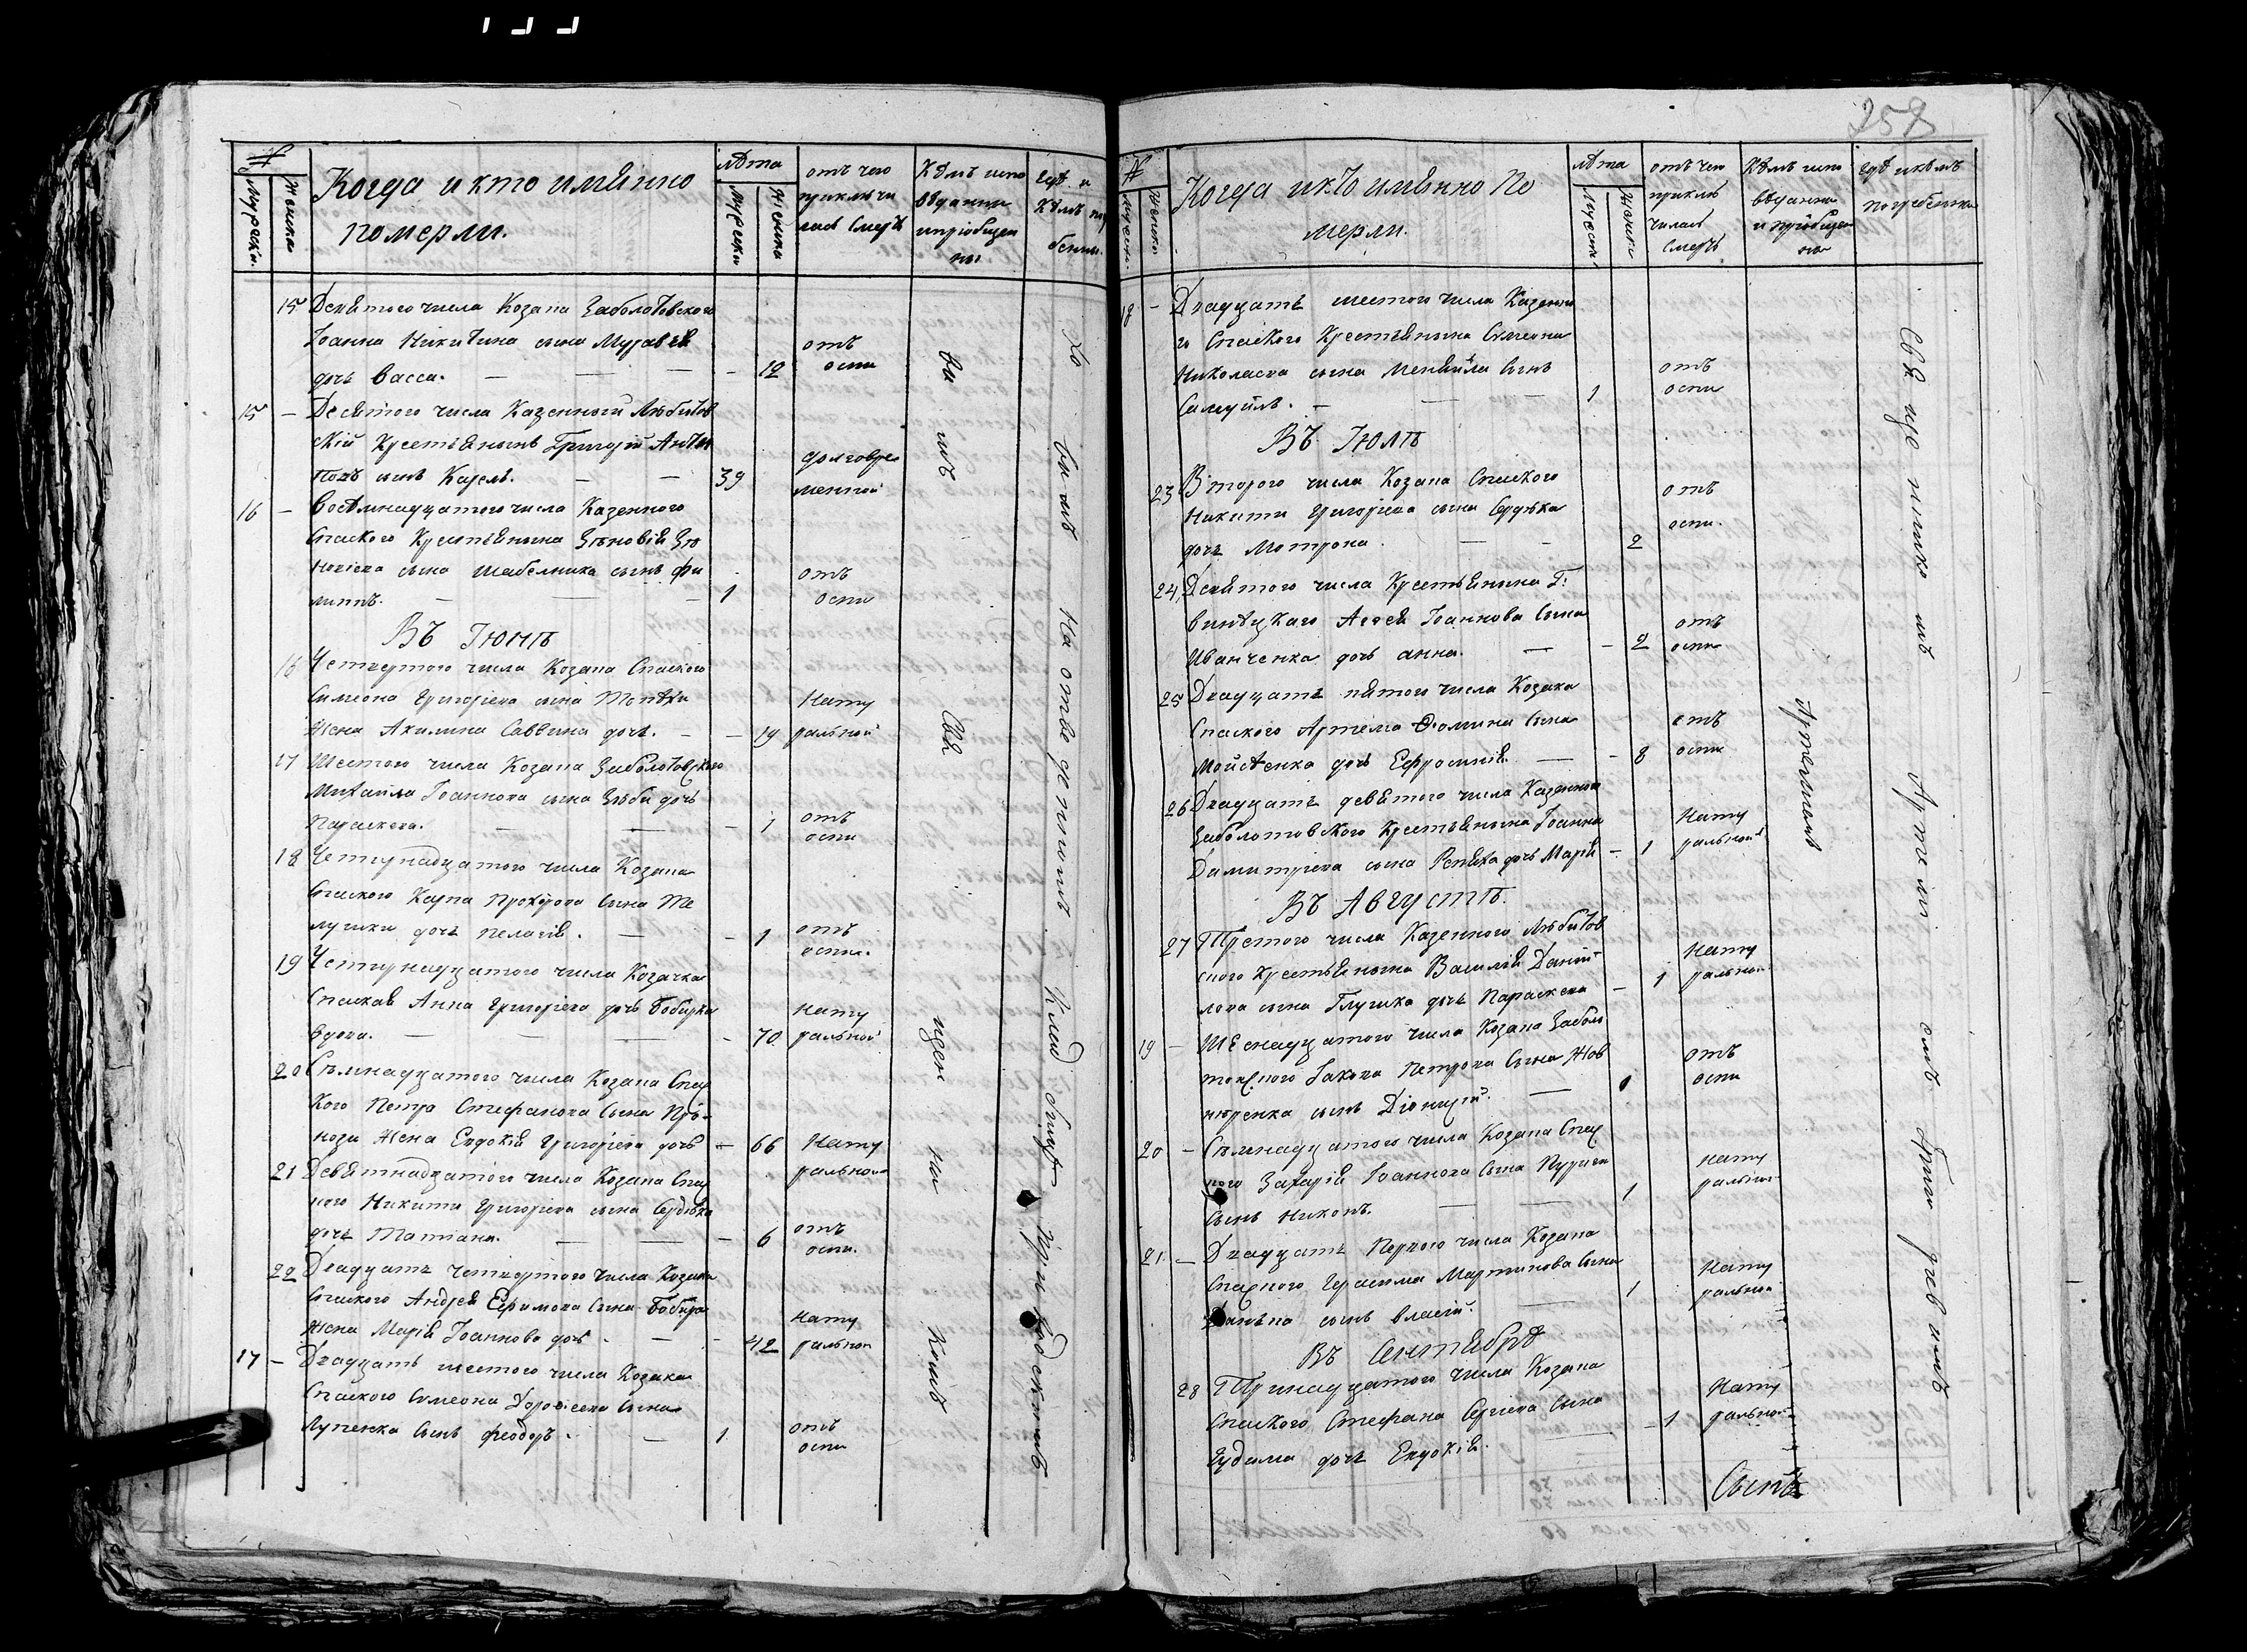 258
№
Мужеска.
Женска
Когда и кто имянно
померли.
лѣта
Мужеска
Женска
отъ чего
приключи
лась смерть
Кѣмъ испо
вѣданы
и пріобщен
ны
Гдѣ и
кѣмъ
15 Десятого числа Козака Заболотовского
Іоанна Никитина сына Муравля
дочь Васса. — 12 отъ оспи
15 — Десятого числа Казенный Любитов
скій Крестьянинъ Григорій Антон
повъ сынъ Карель. — 39 долговре
менной
16 — Восѣмнадцатого числа Казенного
Спаского Крестьянина Зѣновія Зѣ
новіева сына Шабелника сынъ Фи
липпъ. — 1 отъ оспи
Въ Іюнѣ
16 Четвертого числа Козака Спаского
Симеона Григоріева сына
Жена Акилина Саввина дочь. — 19 нату
ральной
17 Шестого числа Козака Заболотовского
Михаила Іоаннова сына Зюби дочь
Параскева. — 1 отъ оспи
18 Четырнадцатого числа Козака
Спаского Карпа Прохорова сына Те
лушки дочь Пелагія. — 1 отъ оспи.
19 Четырнадцатого числа Козачка
Спаская Анна Григоріева дочь Бобирка
вдова. — 70 нату
ральной
20 Сѣмнадцатого числа Козака Спас
кого Петра Стефанова сына Прі-
нози Жена Евдокія Григоріева дочь — 66 нату
ральной
21 Девятнадцатого числа Козака Спас
кого Никити Григоріева сына Сердюка
дочь Татіана. — 6 отъ оспи.
22 Двадцать четвертого числа Козака
Спаского Андрея Ефимова сына Бобира
жена Марія Іоаннова дочь. — 42 нату
ральной
17 — Двадцать шестого числа Козака
Спаского Симеона Дорофеева сына
Лупенка сынъ Феодоръ. — 1 отъ оспи
Священникомъ
На отведенномъ
Приходскимъ
№
Мужеска.
Женска
Когда и кто имянно по
мерли.
лѣта
Мужеска
Женска
отъ чего
приклю
чилась
смерть
Кѣмъ испо
вѣданны
и пріобщен
ны
Гдѣ и кѣмъ
погребенны
18 — Двадцать шестого числа Казенно
го Спаского Крестьянина Симеона
Николаева сына Менвийла сынъ
Самуилъ. — 1 отъ оспи
Въ Іюлѣ
23 Второго числа Козака Спаского
Никити Григоріева сына Сердюка
дочь Мотрона. — 2 отъ оспи.
24 Десятого числа Крестьянина Г:
Винѣцкаго Аггея Іоаннова сына
Иванченка дочь Анна. — 2 отъ оспи
25 Двадцать пятого числа Козака
Спаского Артема Ѳомина сына
Мойсѣенка дочь Ефросинія. — 8 отъ оспи
26 Двадцать девятого числа Казенного
Заболотовского Крестьянина Іоанна
Димитріева сына Репяха дочь Марія — 1 нату
ральной
Въ Августѣ.
27 Третого числа Казенного Любитов
ского Крестьянина Василія Даний-
лова сына Глушка дочь Параскева — 1 нату
ральной
19 — Шеснадцатого числа Козака Заболо
товского Іакова Петрова сына Жов
нѣренка сынъ Діонисій. — 1 отъ оспи
20 — Сѣмнадцатого числа Козака Спас
кого Захарія Іоаннова сына
сынъ Никонъ. — 1 нату
ральной
21 — Двадцать первого числа Козака
Спаского Герасима Мартинова сына
сынъ Власій. — 1 нату
ральной
Въ Сентябрѣ
28 Тринадцатого числа Козака
Спаского Стефана Сергіева сына
Гудима дочь Евдокія. — 1 нату
ральной
Священникомъ
Сынъ